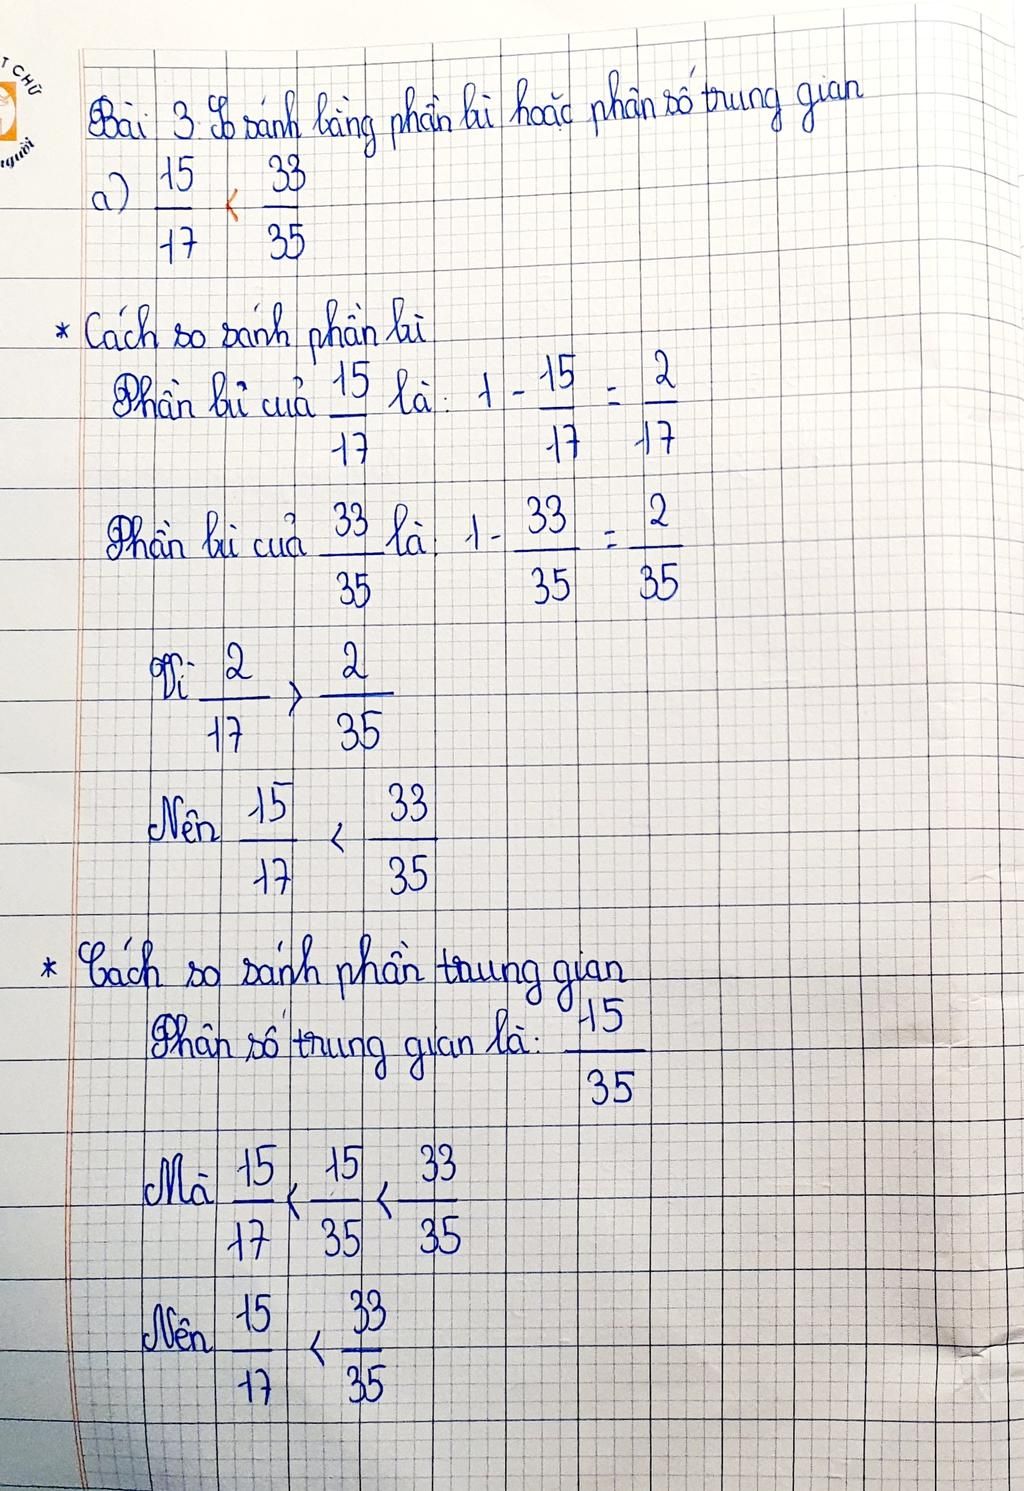 T CHỮ
người
Bài 3. So sánh bằng phần bù hoặc phân số trung gian
a) 15/17 < 33/35
* Cách so sánh phần bù
Phần bù của 15/17 là: 1 - 15/17 = 2/17
Phần bù của 33/35 là: 1 - 33/35 = 2/35
Vì 2/17 > 2/35
Nên 15/17 < 33/35
* Cách so sánh phần trung gian
Phân số trung gian là: 15/35
Mà 15/17 < 15/35 < 33/35
Nên 15/17 < 33/35